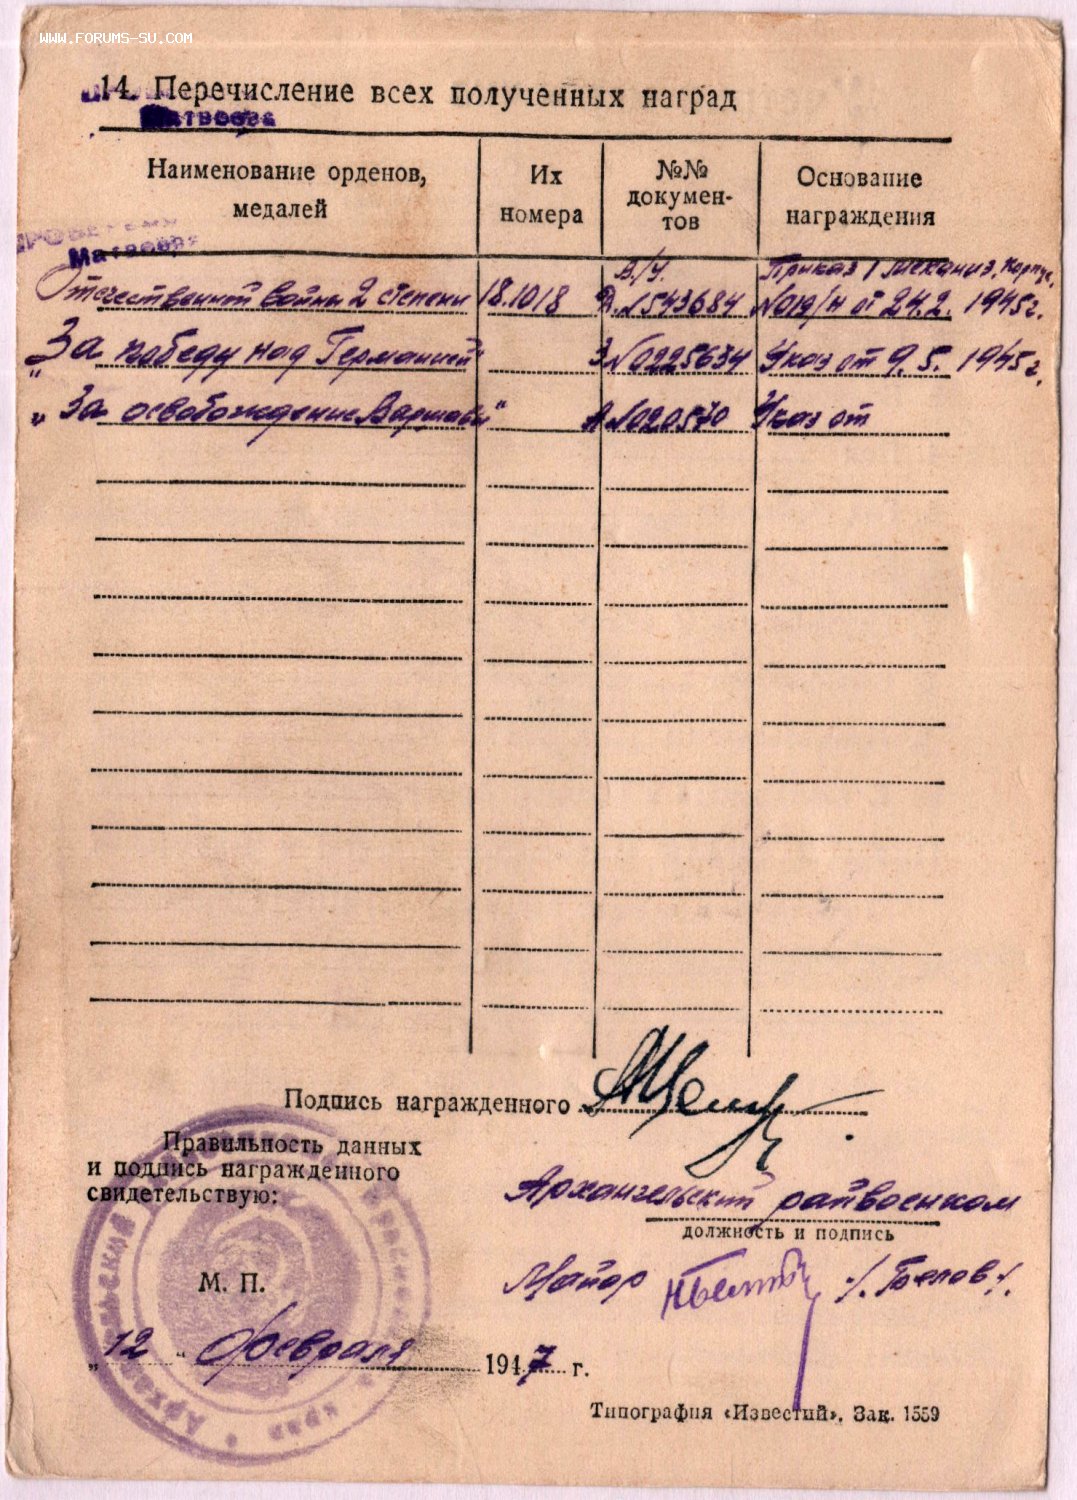 WWW.FORUMS-SU.COM
14. Перечисление всех полученных наград
Матвеева
Наименование орденов, медалей
Их номера
№№ докумен- тов
Основание награждения
Матвеева
В/У. Приказ 1 механиз. Корпус.
Отечественной войны 2 степени 181018 Д. №543684 №019/н от 24.2. 1945г.
"За победу над Германией" З №0225634 Указ от 9.5. 1945г.
"За освобождение Варшавы" А №020570 Указ от
Подпись награжденного
Правильность данных
и подпись награжденного
свидетельствую:
Архангельский райвоенком
должность и подпись
М. П.
Майор /. Белов ./.
„12“ февраля 1947 г.
Типография «Известий». Зак. 1559